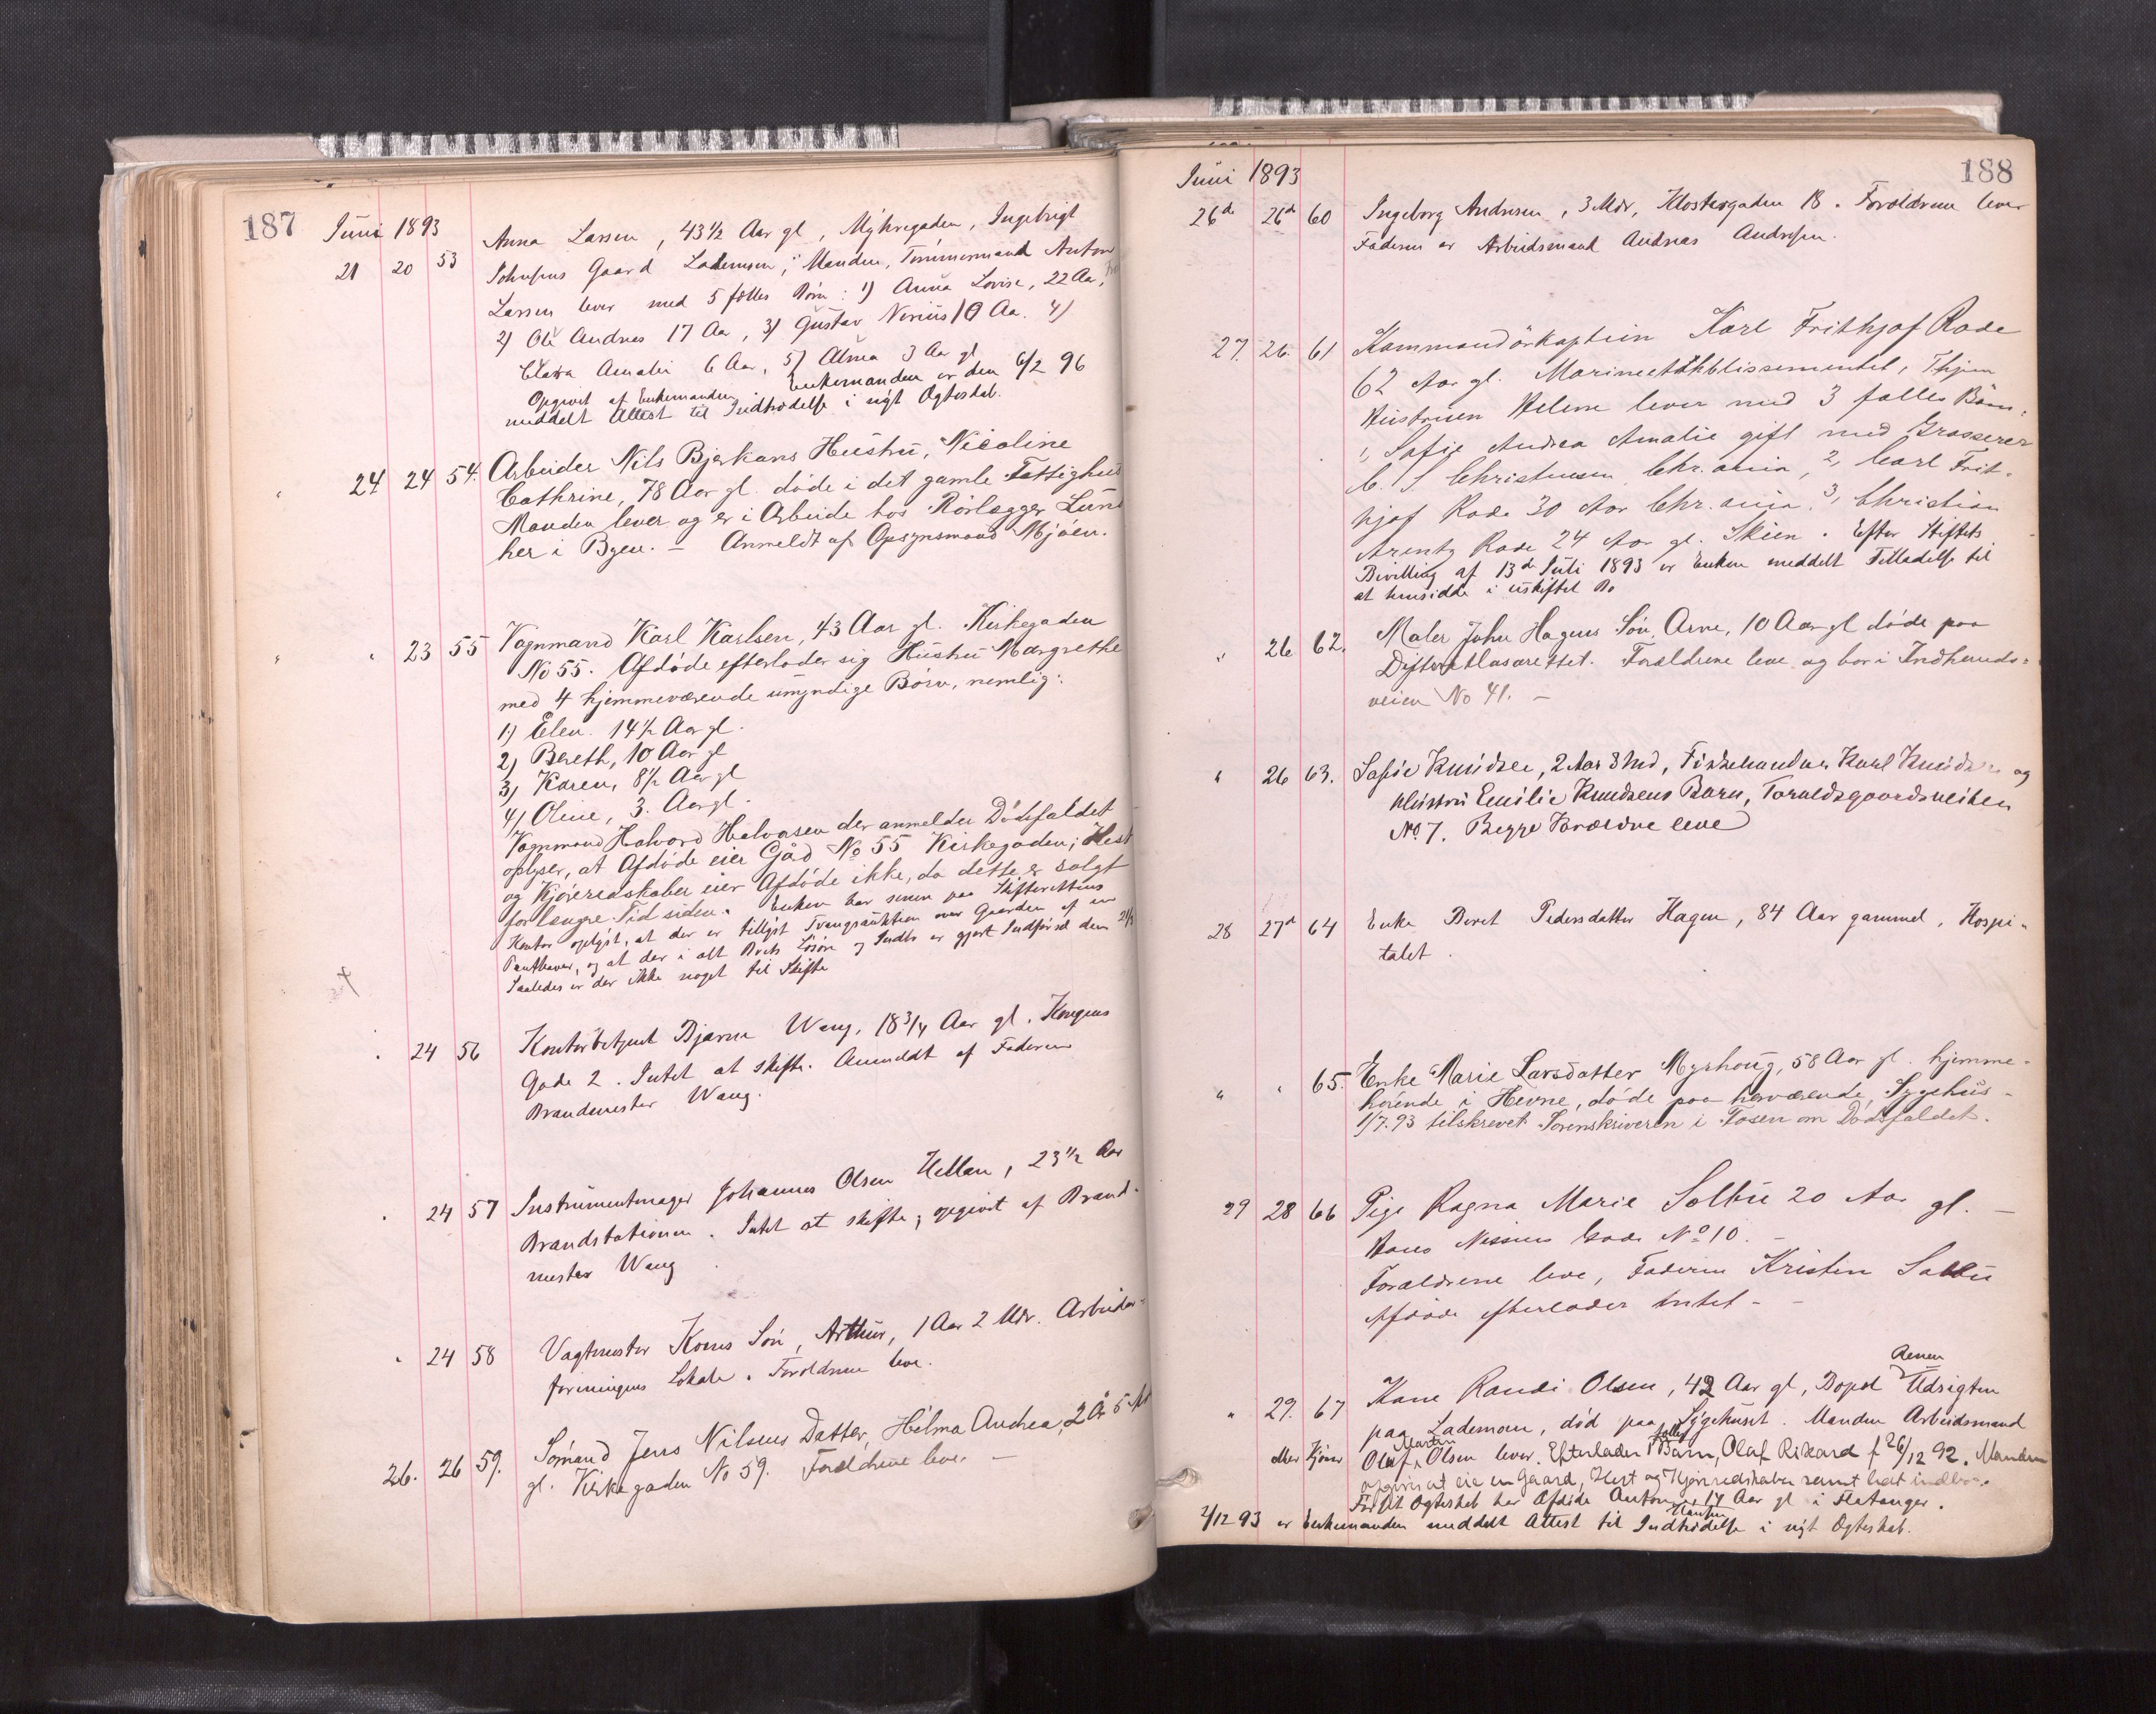 187
Juni 1893
21 20 53 Anna Larsen, 43½ Aar gl, Myhregaden, Ingebrigt
Johnsens Gaard Lademoen, Manden, Tømmermand Anton
Larsen lever med 5 fælles Børn: 1) Anna Lovise, 22 Aa,
2) Ole Andreas 17 Aa, 3) Gustav Nerius 10 Aa. 4)
Clara Amalie 6 Aa, 5) Alma 3 Aar gl
Opgivet af Enkemanden Enkemanden er den 6/2 96
meddelt Attest til Indtrædelse i nyt Ægteskab.
" 24 24 54. Arbeider Nils Bjerkans Hustru, Nicoline
Cathrine, 78 Aar gl. døde i det gamle Fattighus
Manden lever og er i Arbeide hos Rørlægger Lund
her i Byen. – Anmeldt af Opsynsmand Mjøen.
" " 23 55 Vognmand Karl Karlsen, 43 Aar gl. Kirkegaden
No 55. Afdøde efterlader sig Hustru Margrethe
med 4 hjemmeværende umyndige Børn, nemlig:
1) Elen. 14½ Aar gl.
2) Bereth, 10 Aar gl
3) Karen, 8½ Aar gl
4) Oline, 3. Aar gl.
Vognmand Halvard Halvorsen der anmelder Dødsfaldet
oplyser, at Afdøde eier Gåd No 55 Kirkegaden; Hest
og Kjøreredskaber eier Afdøde ikke, da dette er solgt
for længre Tid siden. Enken har senere paa Skifterettens
Kontor oplyst, at der er tillyst Tvangsauktion over Gaarden af en
Panthaver, og at der i alt Boets Løsøre og Indbo er gjort Indførsel den 21/3
Saaledes er der ikke noget til Skifte
" 24 56 Kontorbetjent Bjarne Wang, 18 3/4 Aar gl. Kongens
Gade 2. Intet at skifte. Anmeldt af Faderen
Brandmester Wang.
" 24 57 Instrumentmager Johannes Olsen Hellan, 23½ Aar
Brandstationen. Intet at skifte; opgivet af Brand-
mester Wang
" 24 58 Vagtmester Kornes Søn, Arthur, 1 Aar 2 Mdr. Arbeider-
foreningens Lokale. Forældrene leve.
26. 26 59. Sømand Jens Nilsens Datter, Hilma Andrea, 2 År 5 Md
gl. Kirkegaden No 59. Forældrene leve. –
188
Juni 1893
26de 26d 60 Ingeborg Andresen, 3 Mdr, Klostergaden 18. Forældrene lever
Faderen er Arbeidsmand Andreas Andresen.
27. 26. 61 Kommandørkaptein Karl Frithjof Rode
62 Aar gl. Marineetablissementet, Thjem
Hustruen Helene lever med 3 fælles Børn:
1, Sofie Andrea Amalie gift med Grosserer
C. S Christensen, Chr.ania, 2, Carl Frit-
hjof Rode 30 Aar Chr.ania, 3, Christian
Arentz Rode 24 Aar gl. Skien. Efter Stiftets
Bevilling af 13de Juli 1893 er Enken meddelt Tilladelse til
at hensidde i uskiftet Bo
" 26 62. Maler John Hagens Søn, Arne, 10 Aar gl døde paa
Distriktlasarettet. Forældrene leve og bor i Indherreds-
veien No 41. –
" 26 63. Sofie Knudsen, 2 Aar 8 Md, Fiskehandler Karl Knudsen og
Hustru Emilie Knudsens Barn, Toruldsgaardsveiten
No 7. Begge Forældre leve
28 27d 64 Enke Beret Pedersdatter Hagen, 84 Aar gammel, Hospi-
talet.
" " 65. Enke Marie Larsdatter Myrhoug, 58 Aar gl. hjemme-
hørende i Hevne, døde paa herværende Sygehus –
1/7.93 tilskrevet Sorenskriveren i Fosen om Dødsfaldet.
29 28 66 Pige Ragna Marie Solbu 20 Aar gl. –
Hans Nissens Gade No 10. –
Forældrene leve, Faderen Kristen Solbu
Afdøde efterlader Intet –
" 29. 67 Kone Randi Olsen, 42 Aar gl, Bopæl Udsigten
paa Lademoen, død paa Sygehuset. Manden Arbeidsmand
Olaf Martin Olsen lever. Efterlader 1 fælles Barn, Olaf Rikard f 26/12 92. Manden
opgives at eie en Gaard, Hest og Kjøreredskaber samt lidt indbo.
Første Ægteskab har Afdøde Anton Hansen 14 Aar gl i Flatanger.
2/12 93 er Enkemanden meddelt Attest til Indtrædelse i nyt Ægteskab.